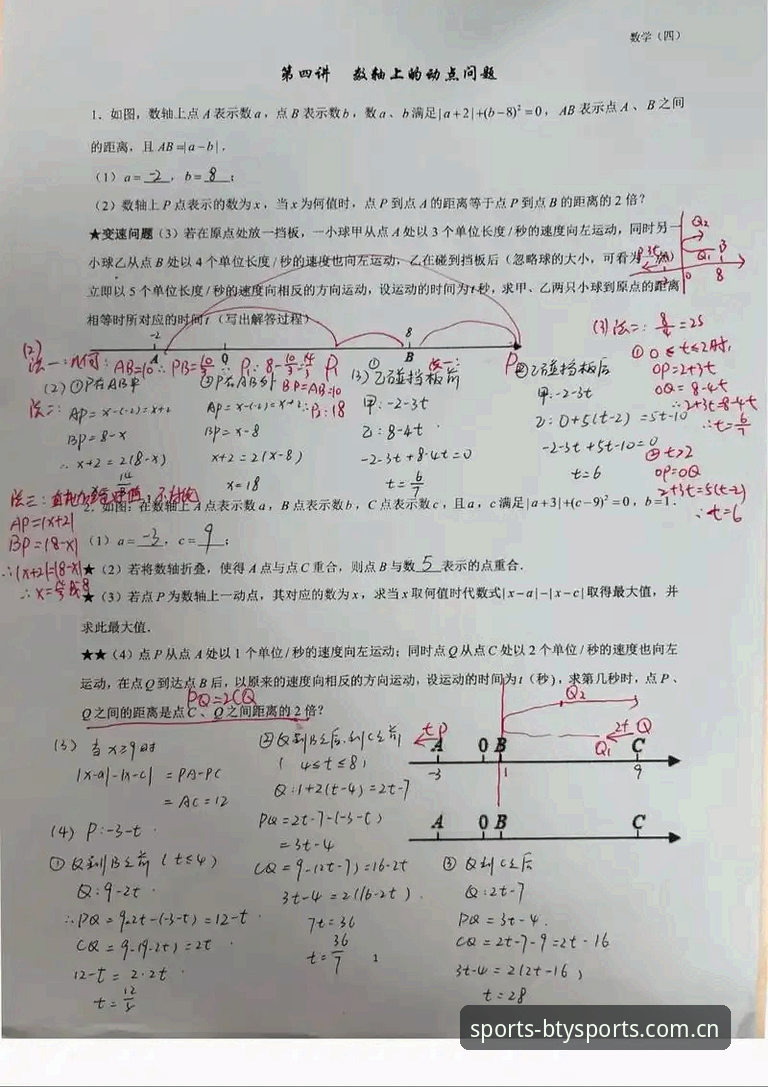 数学（四）
第四讲 数轴上的动点问题
1．如图，数轴上点A表示数a，点B表示数b，数a、b满足|a+2|+(b-8)²=0，AB表示点A、B之间
的距离，且AB=|a-b|．
（1）a=-2，b=8；
（2）数轴上P点表示的数为x，当x为何值时，点P到点A的距离等于点P到点B的距离的2倍？
★变速问题（3）若在原点处放一挡板，一小球甲从点A处以3个单位长度/秒的速度向左运动，同时另一
小球乙从点B处以4个单位长度/秒的速度也向左运动，乙在碰到挡板后（忽略球的大小，可看为一
立即以5个单位长度/秒的速度向相反的方向运动，设运动的时间为t秒，求甲、乙两只小球到原点的距离
相等时所对应的时间t（写出解答过程）
Q₂
Q₁ B
0 8
-2 8
A 0 P₁ B P₂
(2)
法一：几何：AB=10 ∴PB=10/3 ∴P₁：8-10/3=14/3
BP=AB=10
∴P₂：18
(2) ①P在AB中
法二：AP=x-(-2)=x+2
BP=8-x
∴x+2=2(8-x)
x=14/3
②P在AB外
AP=x-(-2)=x+2
BP=x-8
x+2=2(x-8)
x=18
(3) 法一：
①乙碰挡板前
甲：-2-3t
乙：8-4t
-2-3t+8-4t=0
t=6/7
②乙碰挡板后
甲：-2-3t
乙：0+5(t-2)=5t-10
-2-3t+5t-10=0
t=6
(3) 法二：8/4=2S
①0≤t≤2时，
OP=2+3t
OQ=8-4t
∴2+3t=8-4t
∴t=6/7
②t>2
OP=OQ
2+3t=5(t-2)
∴t=6
法三：
AP=|x+2|
BP=|8-x|
2．如图：在数轴上A点表示数a，B点表示数b，C点表示数c，且a，c满足|a+3|+(c-9)²=0，b=1．
（1）a=-3，c=9；
★（2）若将数轴折叠，使得A点与点C重合，则点B与数5表示的点重合．
★（3）若点P为数轴上一动点，其对应的数为x，求当x取何值时代数式|x-a|-|x-c|取得最大值，并
求此最大值．
★★（4）点P从点A处以1个单位/秒的速度向左运动；同时点Q从点C处以2个单位/秒的速度也向左
运动，在点Q到达点B后，以原来的速度向相反的方向运动，设运动的时间为t（秒），求第几秒时，点P、
PQ=2CQ
Q之间的距离是点C、Q之间距离的2倍？
Q₂
t P 2t Q
Q₁
A 0 B C
-3 1 9
A 0 B C
(3) 当x≥9时
|x-a|-|x-c| =PA-PC
=AC=12
(4) P：-3-t
①Q到B之前（t≤4）
Q：9-2t
∴PQ=9-2t-(-3-t)=12-t
CQ=9-(9-2t)=2t
12-t=2·2t
t=12/5
②Q到B之后，到C之前
(4≤t≤8)
Q：1+2(t-4)=2t-7
PQ=2t-7-(-3-t)
=3t-4
CQ=9-(2t-7)=16-2t
3t-4=2(16-2t)
7t=36
t=36/7
1
③Q到C之后
Q：2t-7
PQ=3t-4
CQ=2t-7-9=2t-16
3t-4=2(2t-16)
t=28
sports-btysports.com.cn